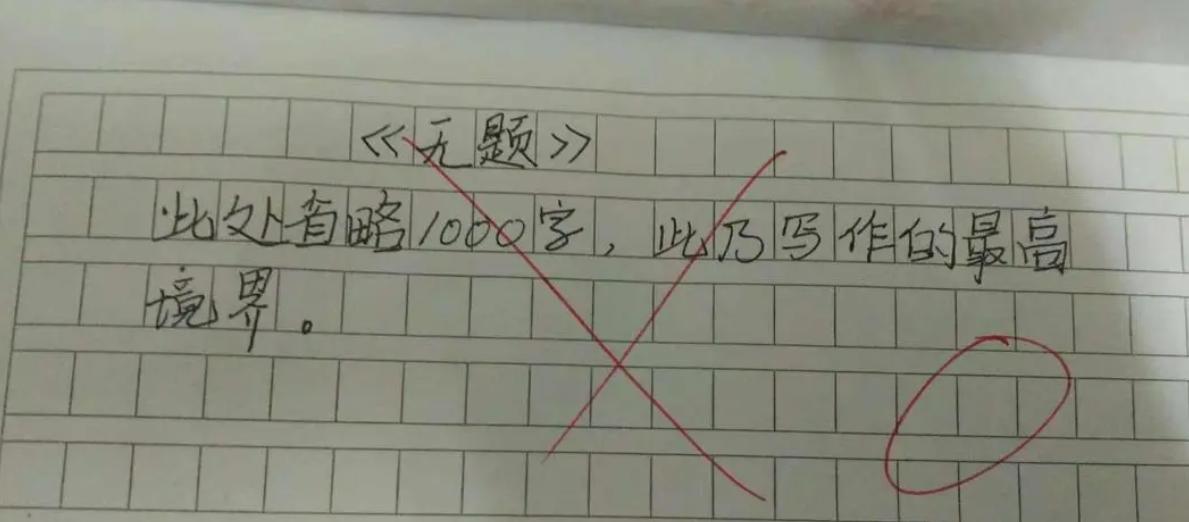 《无题》
此处省略1000字，此乃写作的最高
境界。